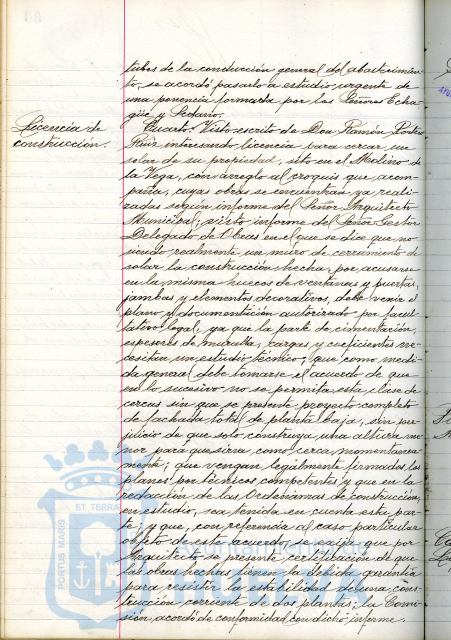 tubos de la conducción general del abastecimien-
to, se acordó pasarlo a estudio urgente de
una ponencia formada por los Señores Echa-
güe y
Licencia de
construcción.
Cuarto. Visto escrito de Don Ramón
Ruiz interesando licencia para cercar un
solar de su propiedad, sito en el Molino de
la Vega, con arreglo al croquis que acom-
paña, cuyas obras se encuentran ya reali-
zadas según informe del Señor Arquitecto
Municipal; visto informe del Señor Gestor
Delegado de Obras en el que se dice que no
siendo realmente un muro de cerramiento de
solar la construcción hecha por acusarse
en la misma huecos de ventanas y puertas,
jambas y elementos decorativos, debe venir el
plano y documentación autorizado por facul-
tativo legal, ya que la parte de cimentación,
espesores de muralla, cargas y coeficientes ne-
cesitan un estudio técnico; que como medi-
da general debe tomarse el acuerdo de que
en lo sucesivo no se permita esta clase de
cercas sin que se presente proyecto completo
de fachada total de planta baja, sin per-
juicio de que solo construya una altura me-
nor para que sirva como cerca, momentanea-
mente; que vengan legalmente firmados los
planos por técnicos competentes y que en la
redacción de las Ordenanzas de construcción,
en estudio, sea tenida en cuenta esta par-
te; y que, con referencia al caso particular
objeto de este acuerdo, se exija que por
Arquitecto se presente certificación de que
las obras hechas tienen la debida garantía
para resistir la estabilidad de una cons-
trucción corriente de dos plantas; la Comi-
sión acordó de conformidad con dicho informe.
PORTUS MARIS
ET TERRAE
Ayuntamiento de
HUELVA